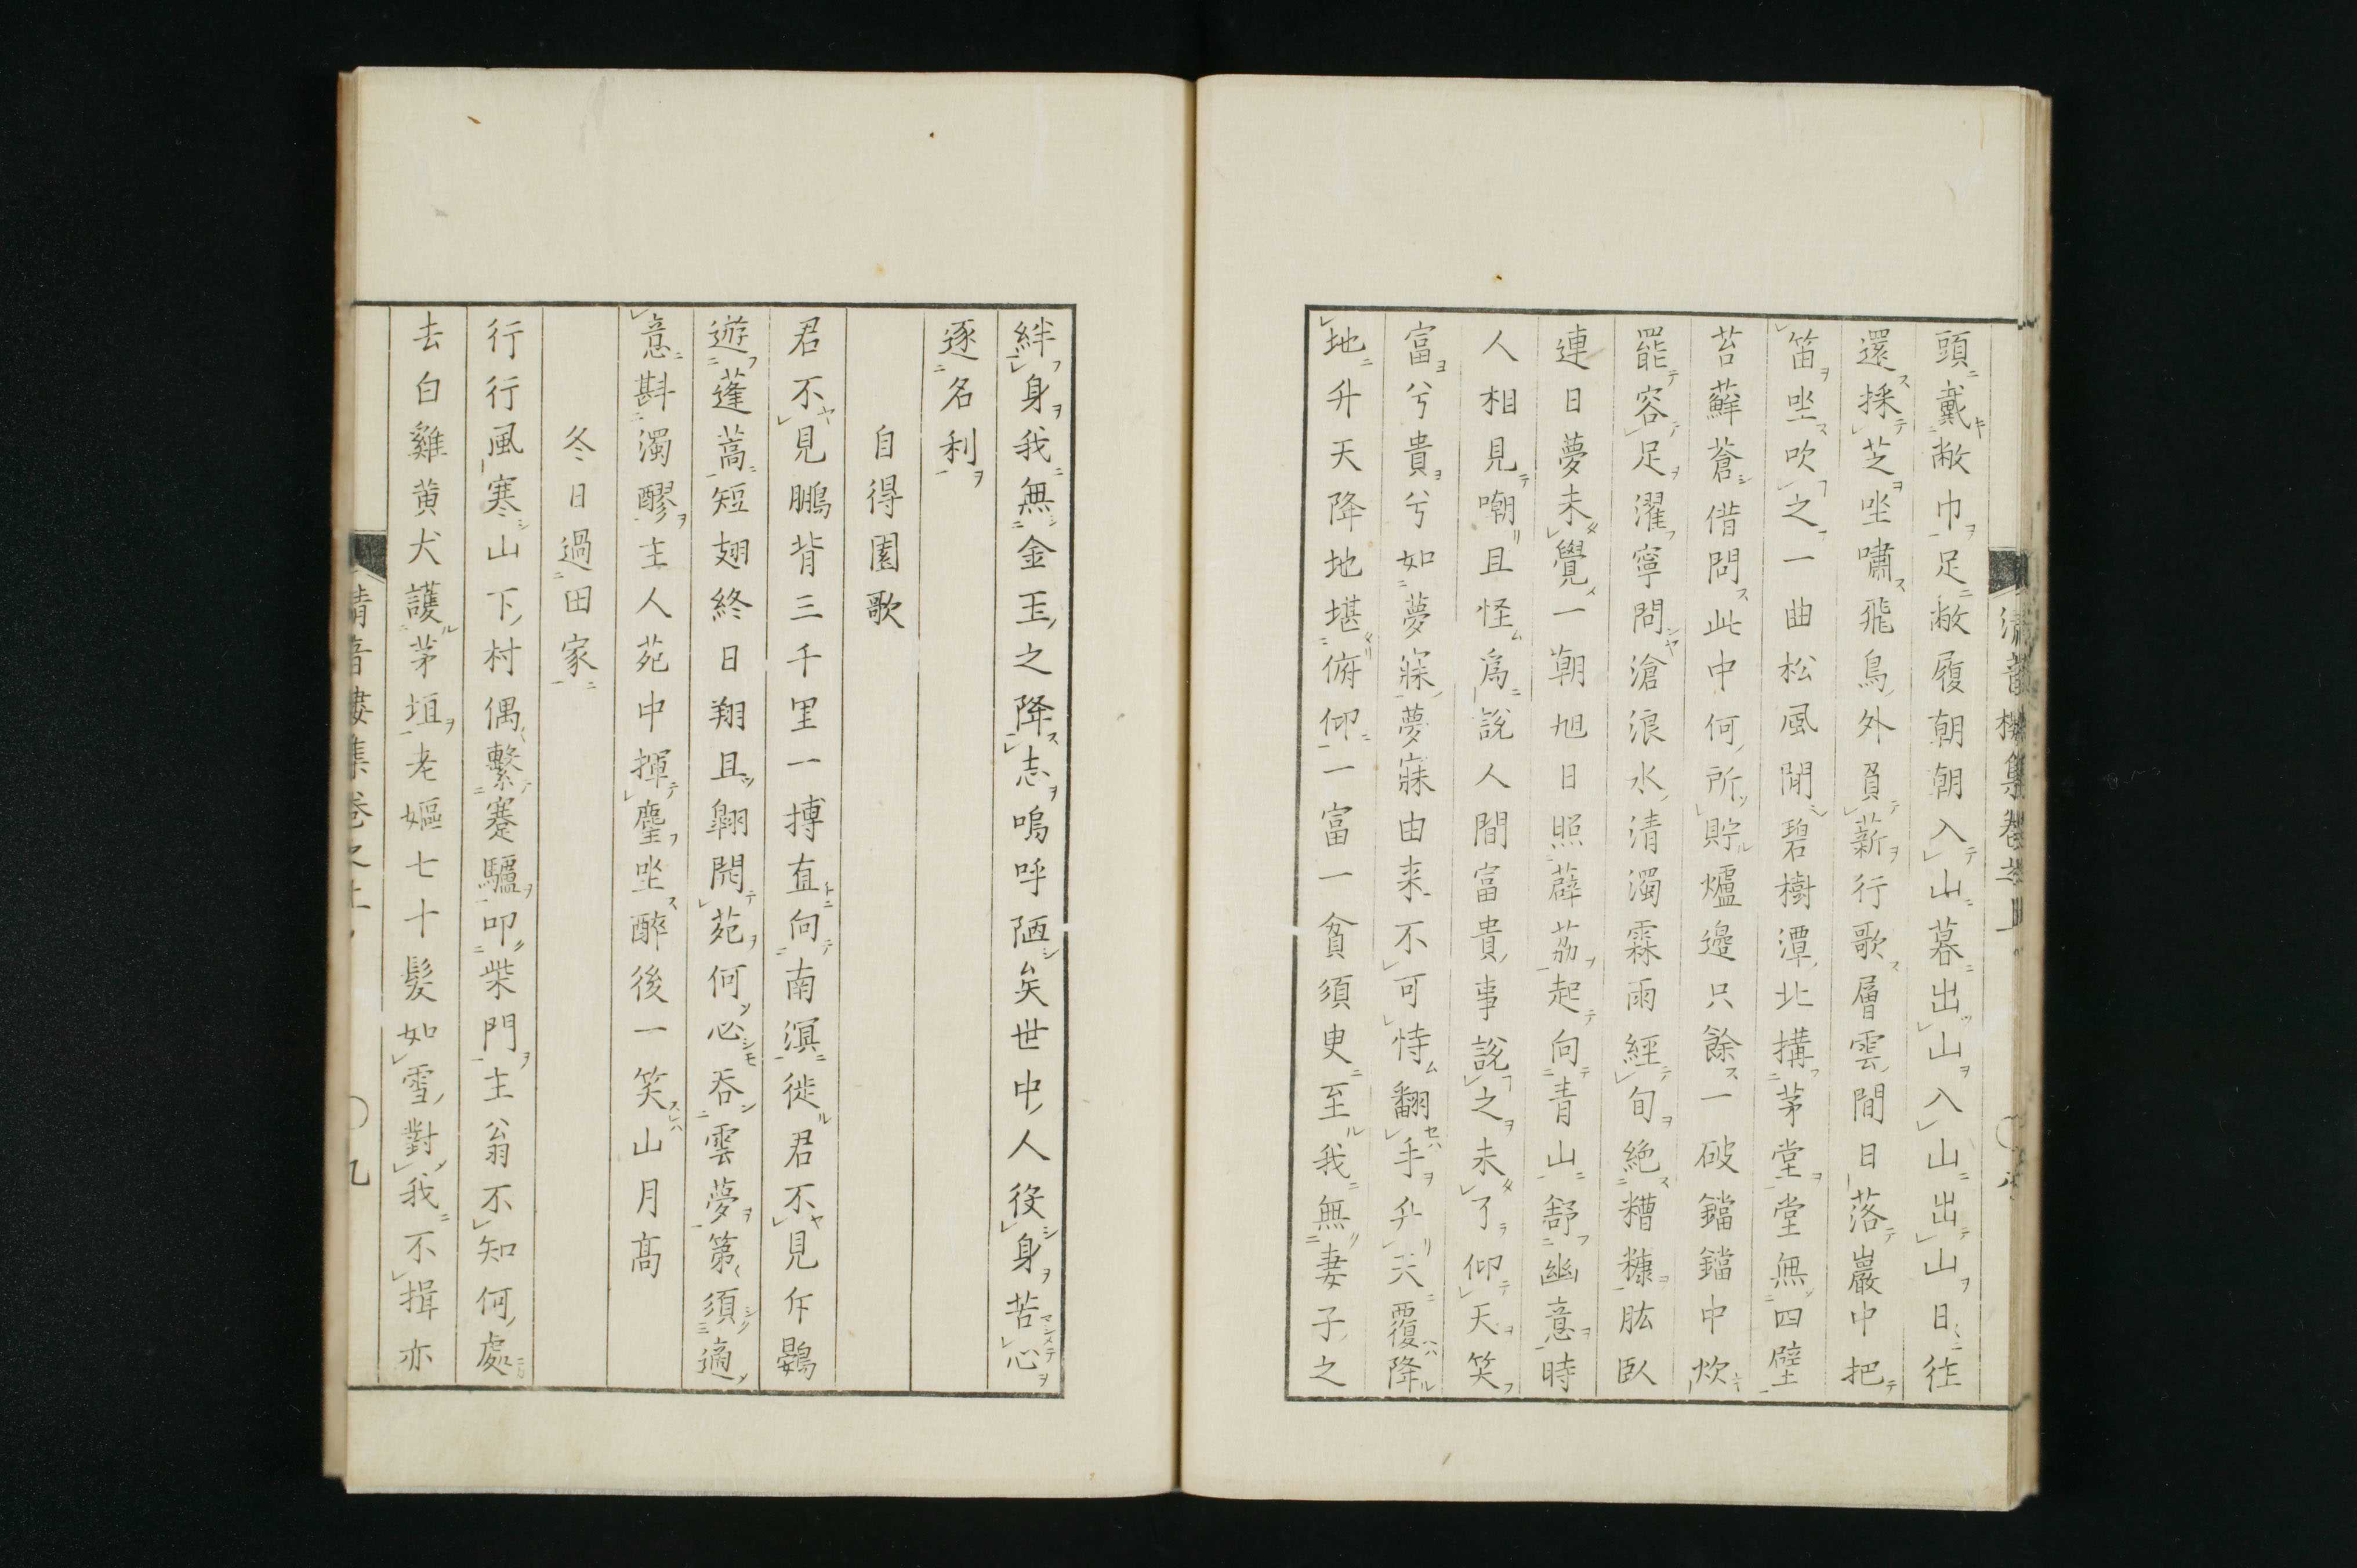 頭戴敝巾足敝履朝朝入山暮出山入山出山日往
還採芝坐嘯飛鳥外負薪行歌層雲間日落巖中把
笛坐吹之一曲松風閒碧樹潭北搆茅堂堂無四壁
苔蘚蒼借問此中何所貯爐邊只餘一破鐺鐺中炊
罷容足濯寧問滄浪水清濁霖雨經旬絶糟糠肱臥
連日夢未覺一朝旭日照薜茘起向青山舒幽意時
人相見嘲且怪為說人間富貴事說之未了仰天笑
富兮貴兮如夢寐夢寐由来不可恃翻手升天覆降
地升天降地堪俯仰一富一貧須臾至我無妻子之
絆身我無金玉之降志嗚呼陋矣世中人役身苦心
逐名利
自得園歌
君不見鵬背三千里一搏直向南溟徙君不見斥鷃
遊蓬蒿短翅終日翔且翺閑苑何心吞雲夢第須適
意斟濁醪主人苑中揮麈坐醉後一笑山月高
冬日過田家
行行風寒山下村偶繫蹇驢叩柴門主翁不知何處
去白雞黄犬護茅垣老嫗七十髮如雪對我不揖亦
清音樓集卷之上
九